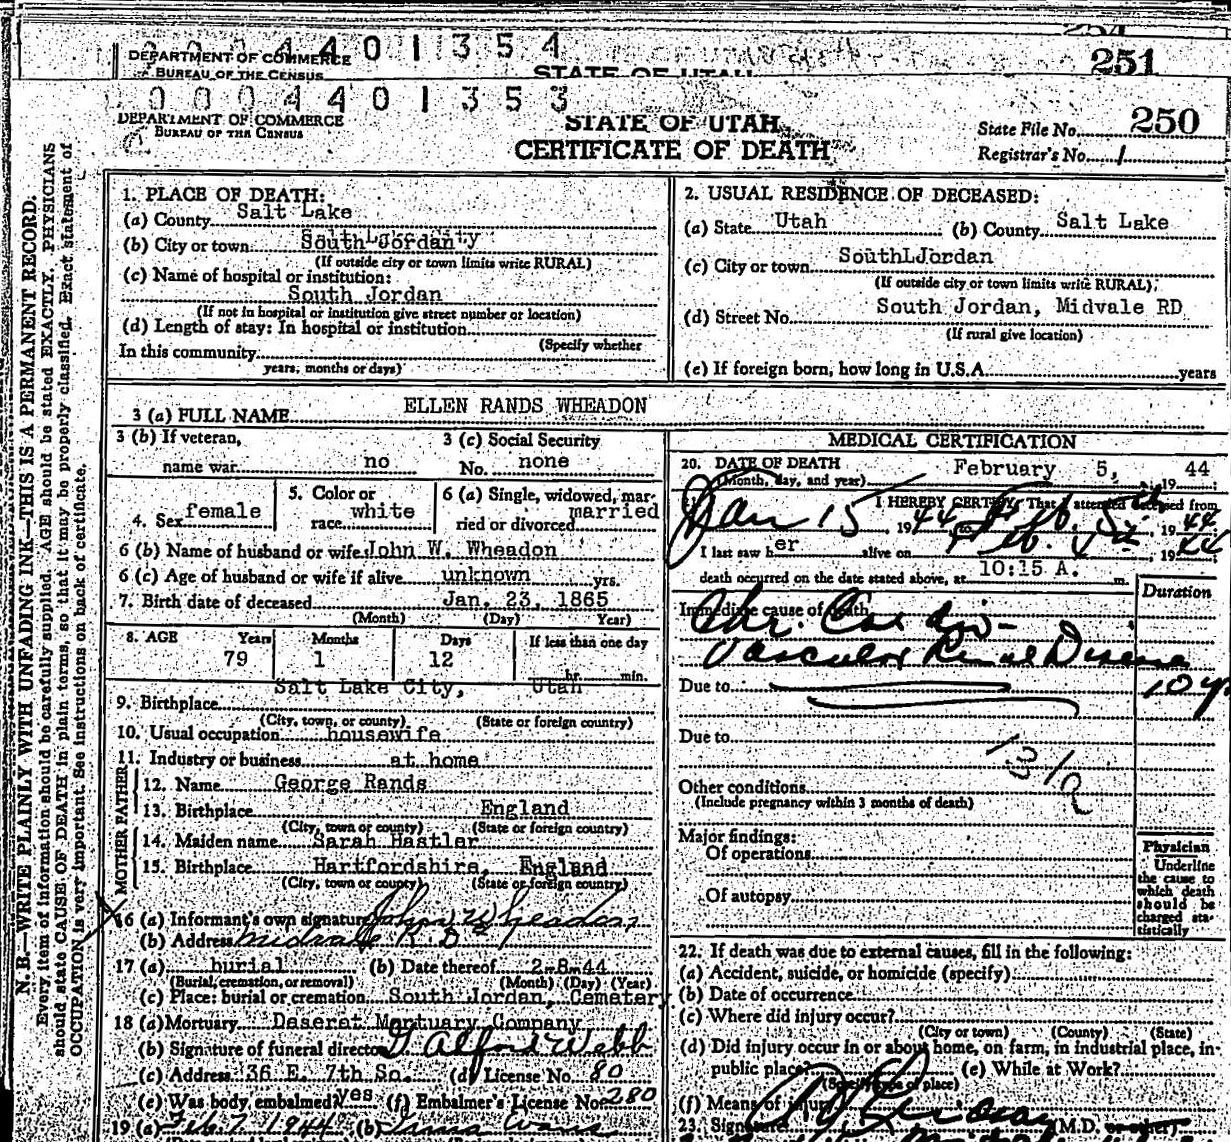 254
0 0 0 4 4 0 1 3 5 4
DEPARTMENT OF COMMERCE
BUREAU OF THE CENSUS
STATE OF UTAH
251
0 0 0 4 4 0 1 3 5 3
DEPARTMENT OF COMMERCE
BUREAU OF THE CENSUS
STATE OF UTAH
CERTIFICATE OF DEATH
State File No. 250
Registrar's No. 1
N. B.—WRITE PLAINLY WITH UNFADING INK—THIS IS A PERMANENT RECORD.
Every item of information should be carefully supplied. AGE should be stated EXACTLY. PHYSICIANS
should state CAUSE OF DEATH in plain terms, so that it may be properly classified. Exact statement of
OCCUPATION is very important. See instructions on back of certificate.
1. PLACE OF DEATH:
(a) County Salt Lake
(b) City or town South Jordan
(If outside city or town limits write RURAL)
(c) Name of hospital or institution:
South Jordan
(If not in hospital or institution give street number or location)
(d) Length of stay: In hospital or institution
(Specify whether
In this community
years, months or days)
2. USUAL RESIDENCE OF DECEASED:
(a) State Utah (b) County Salt Lake
(c) City or town SouthLJordan
(If outside city or town limits write RURAL)
(d) Street No. South Jordan, Midvale RD
(If rural give location)
(e) If foreign born, how long in U.S.A. years
3 (a) FULL NAME ELLEN RANDS WHEADON
3 (b) If veteran, name war no
3 (c) Social Security No. none
4. Sex female
5. Color or race white
6 (a) Single, widowed, married or divorced married
6 (b) Name of husband or wife John W. Wheadon
6 (c) Age of husband or wife if alive unknown yrs.
7. Birth date of deceased Jan. 23, 1865
(Month) (Day) Year)
8. AGE Years Months Days If less than one day
79 1 12 hr. min.
Salt Lake City, Utah
9. Birthplace
(City, town, or county) (State or foreign country)
10. Usual occupation housewife
11. Industry or business at home
FATHER
12. Name George Rands
13. Birthplace England
(City, town or county) (State or foreign country)
MOTHER
14. Maiden name Sarah Hastler
15. Birthplace Hartfordshire, England
(City, town or county) (State or foreign country)
16 (a) Informant's own signature John Wheadon
(b) Address Midvale R.D. 1
17 (a) burial (b) Date thereof 2-8-44
(Burial, cremation, or removal) (Month) (Day) (Year)
(c) Place: burial or cremation South Jordan, Cemetary
18 (a) Mortuary Deseret Mortuary Company
(b) Signature of funeral director Alford Webb
(c) Address 36 E. 7th So. (d) License No. 80
(e) Was body embalmed? yes (f) Embalmer's License No. 280
19 (a) Feb 7 1944 (b) Evans
MEDICAL CERTIFICATION
20. DATE OF DEATH February 5, 19 44
(Month, day, and year)
I HEREBY CERTIFY, That I attended deceased from
Jan 15 1944 to Feb. 5th, 1944
I last saw her alive on Feb. 4th, 1944
death occurred on the date stated above, at 10:15 A. m.
Duration
Immediate cause of death
Chr. Cardio-
Vascular Renal Disease
Due to 10 yr
Due to
131a
Other conditions
(Include pregnancy within 3 months of death)
Major findings:
Of operations
Of autopsy
Physician
Underline
the cause to
which death
should be
charged sta-
tistically
22. If death was due to external causes, fill in the following:
(a) Accident, suicide, or homicide (specify)
(b) Date of occurrence
(c) Where did injury occur?
(City or town) (County) (State)
(d) Did injury occur in or about home, on farm, in industrial place, in
public place? (e) While at Work?
(Specify type of place)
(f) Means of injury
23. Signature (M.D. or other)